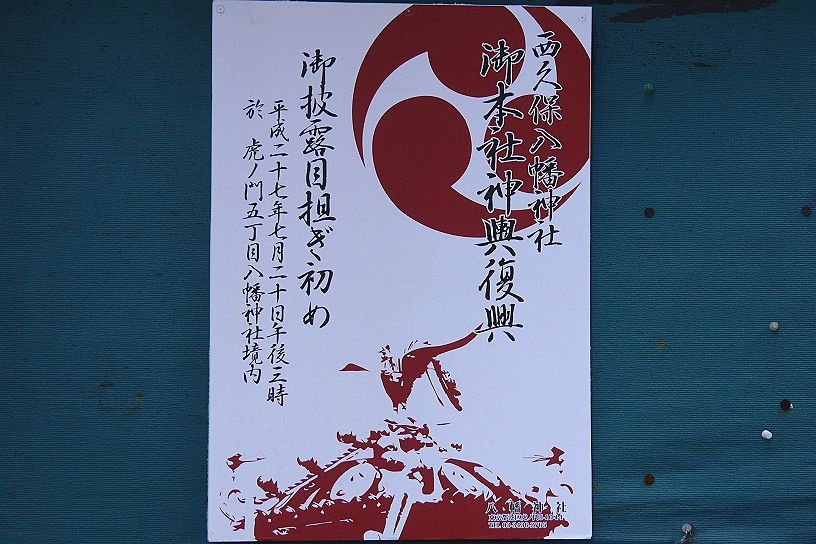 西久保八幡神社
御本社神輿復興
御披露目担ぎ初め
平成二十七年七月二十日午後三時
於 虎ノ門五丁目八幡神社境内
八幡神社